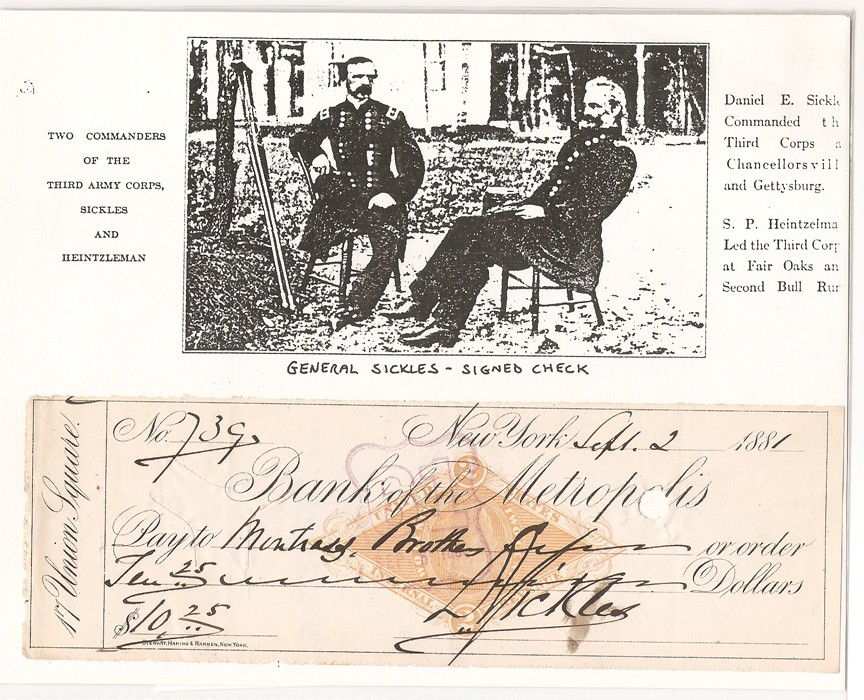 TWO COMMANDERS
OF THE
THIRD ARMY CORPS,
SICKLES
AND
HEINTZLEMAN
Daniel E. Sickl
Commanded th
Third Corps a
Chancellorsvill
and Gettysburg.
S. P. Heintzelma
Led the Third Corp
at Fair Oaks an
Second Bull Run
GENERAL SICKLES - SIGNED CHECK
17 Union Square.
No. 739
New York Sept. 2 1881
Bank of the Metropolis
Pay to Brothers or order
Ten 25 Dollars
$10 25
D Sickles
STEWART, WARING & WARREN, NEW YORK.